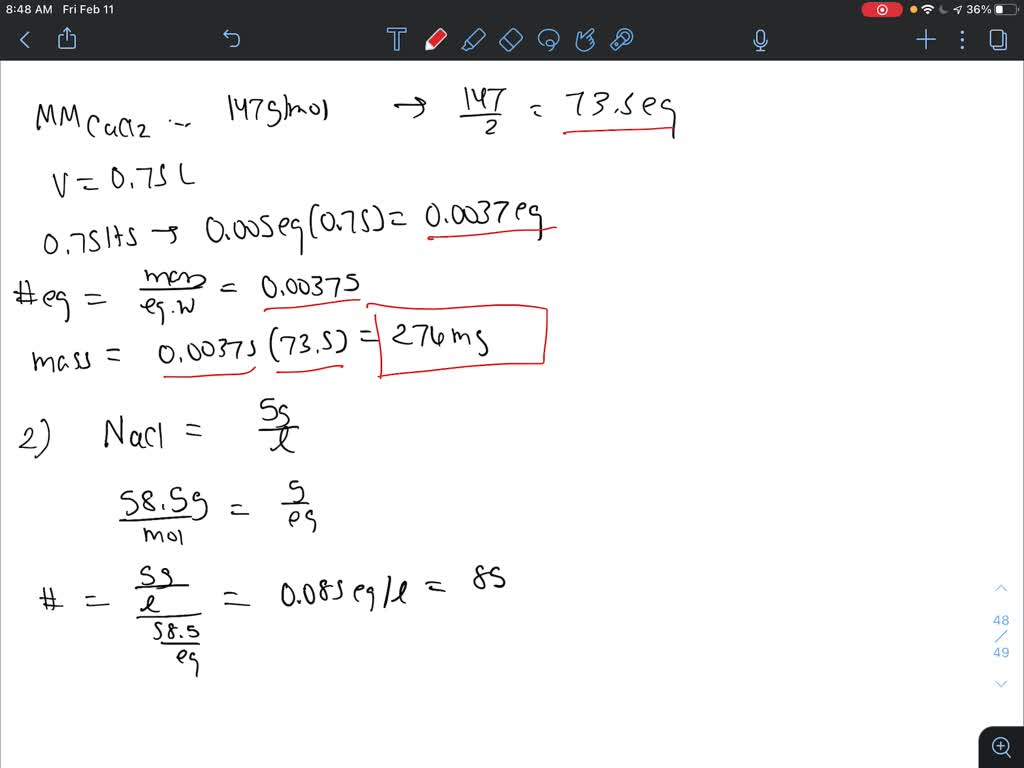 8:48 AM Fri Feb 11 36%
MM CaCl2 -- 147g/mol → 147/2 = 73.5eq
V = 0.75 L
0.75lts → 0.005eq(0.75) = 0.0037eq
#eq = mass/eq.w = 0.00375
mass = 0.00375 (73.5) = 276mg
2) NaCl = 5g/l
58.5g/mol = g/eq
# = 5g/l / 58.5/eq = 0.085eq/l = 85
48
/
49